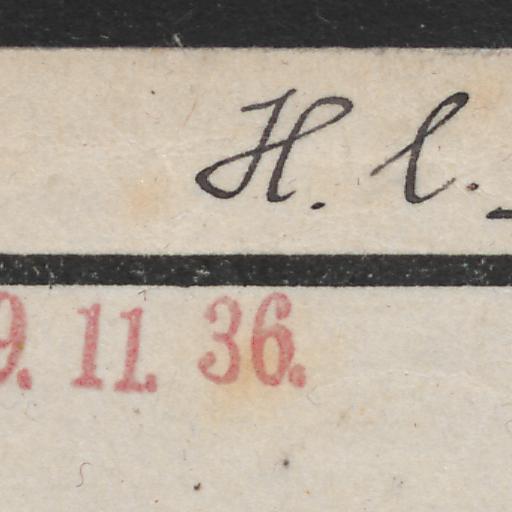 H. l.
9. 11. 36.